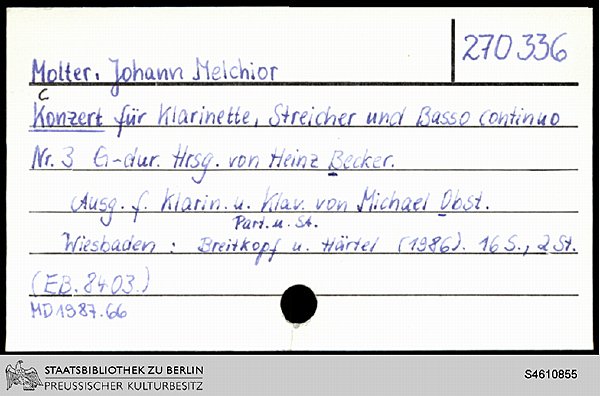 270 336
Molter, Johann Melchior
C
Konzert für Klarinette, Streicher und Basso continuo
Nr. 3 G-dur. Hrsg. von Heinz Becker.
Ausg. f. Klarin. u. Klav. von Michael Obst.
Part. u. St.
Wiesbaden : Breitkopf u. Härtel (1986). 16 S., 2 St.
(EB. 8403.)
MD1987.66
STAATSBIBLIOTHEK ZU BERLIN
PREUSSISCHER KULTURBESITZ
S4610855